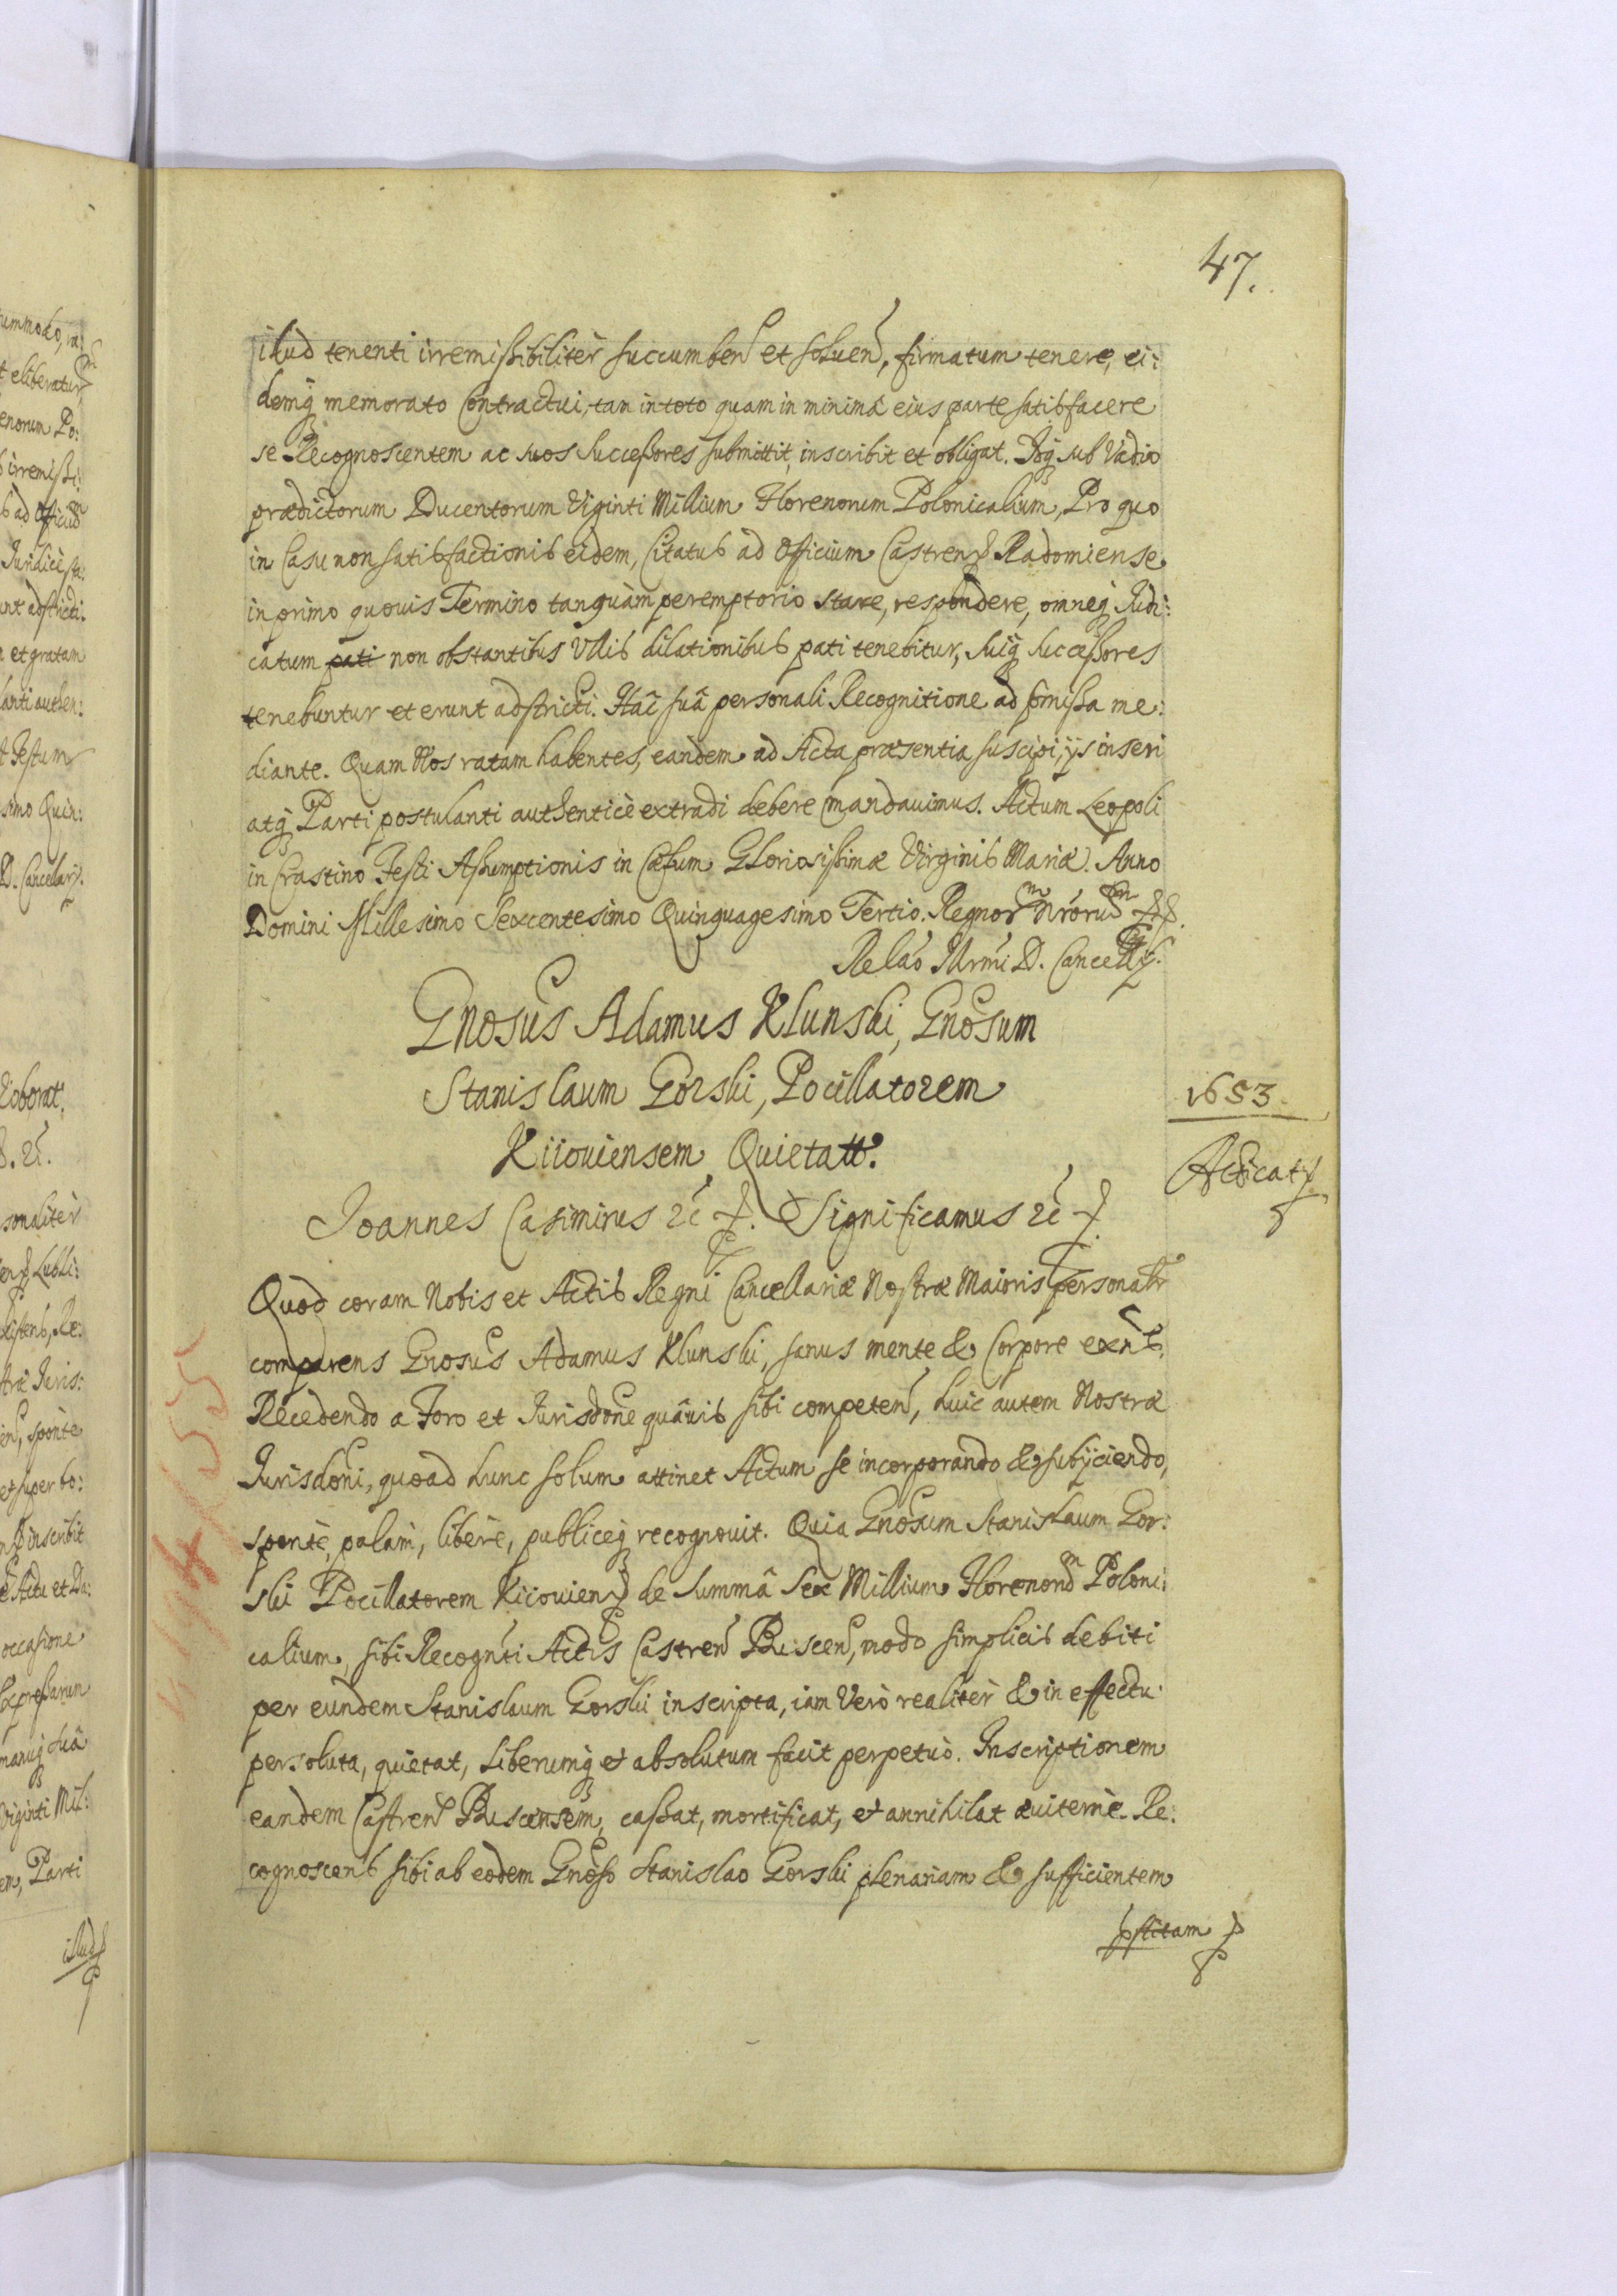 47.
illud tenenti irremissibilitèr succumben et soluen, firmatum tenere, ei:
demq memorato Contractui, tam in toto quam in minimâ eius parte satisfacere
se Recognoscentem ac suos Successores submittit, inscribit et obligat. Idq sub Vadio
prædictorum Ducentorum Viginti Millium Florenorum Polonicalium, Pro quo
in Casu non satisfactionis eidem, Citatus ad Officium Castren Radomiense
in primo quouis Termino tanquam peremptorio stare, respondere, omneq Judi:
catum pati non obstantibus Vllis dilationibus pati tenebitur, suiq successores
tenebuntur et erunt adstricti. Hac suâ personali Recognitione ad pmissa me:
diante. Quam Nos ratam habentes, eandem ad Acta præsentia suscipi, ijs inseri
atq Parti postulanti authenticè extradi debere mandauimus. Actum Leopoli
in Crastino Festi Assumptionis in Cælum Gloriosissimæ Virginis Mariæ. Anno
Domini Millesimo Sexcentesimo Quinquagesimo Tertio. Regnorm Nrorum
Relaô Illrmi D. Cancellrij.
Gnosus Adamus Klunski, Gnosum
Stanislaum Gorski, Pocillatorem
Kiiouiensem Quietatt.
1653.
Adicat
Joannes Casimirus &c. Significamus &c
Quod coram Nobis et Actis Regni Cancellariæ Nostræ Maioris personalr
comparens Gnosus Adamus Klunski, sanus mente & Corpore exns
Recedendo a Foro et Jurisdone quâuis sibi competen, huic autem Nostræ
Jurisdoni, quoad hunc solum attinet Actum se incorporando & subijciendo,
spontè, palam, liberè, publiceq recognouit. Quia Gnosum Stanislaum Gor:
ski Pocillatorem Kiiouien de Summâ Sex Millium Florenorum Poloni:
calium, sibi Recognti Actis Castren Buscen, modo simplicis debiti
per eundem Stanislaum Gorski inscripta, iam Verò realitèr & in effectu
persoluta, quietat, liberumq et absolutum facit perpetuò. Inscriptionem
eandem Castren Buscensem, cassat, mortificat, et annihilat æuiternè. Re:
cognoscens sibi ab eodem Gnoso Stanislao Gorski plenariam & sufficientem
pstitam